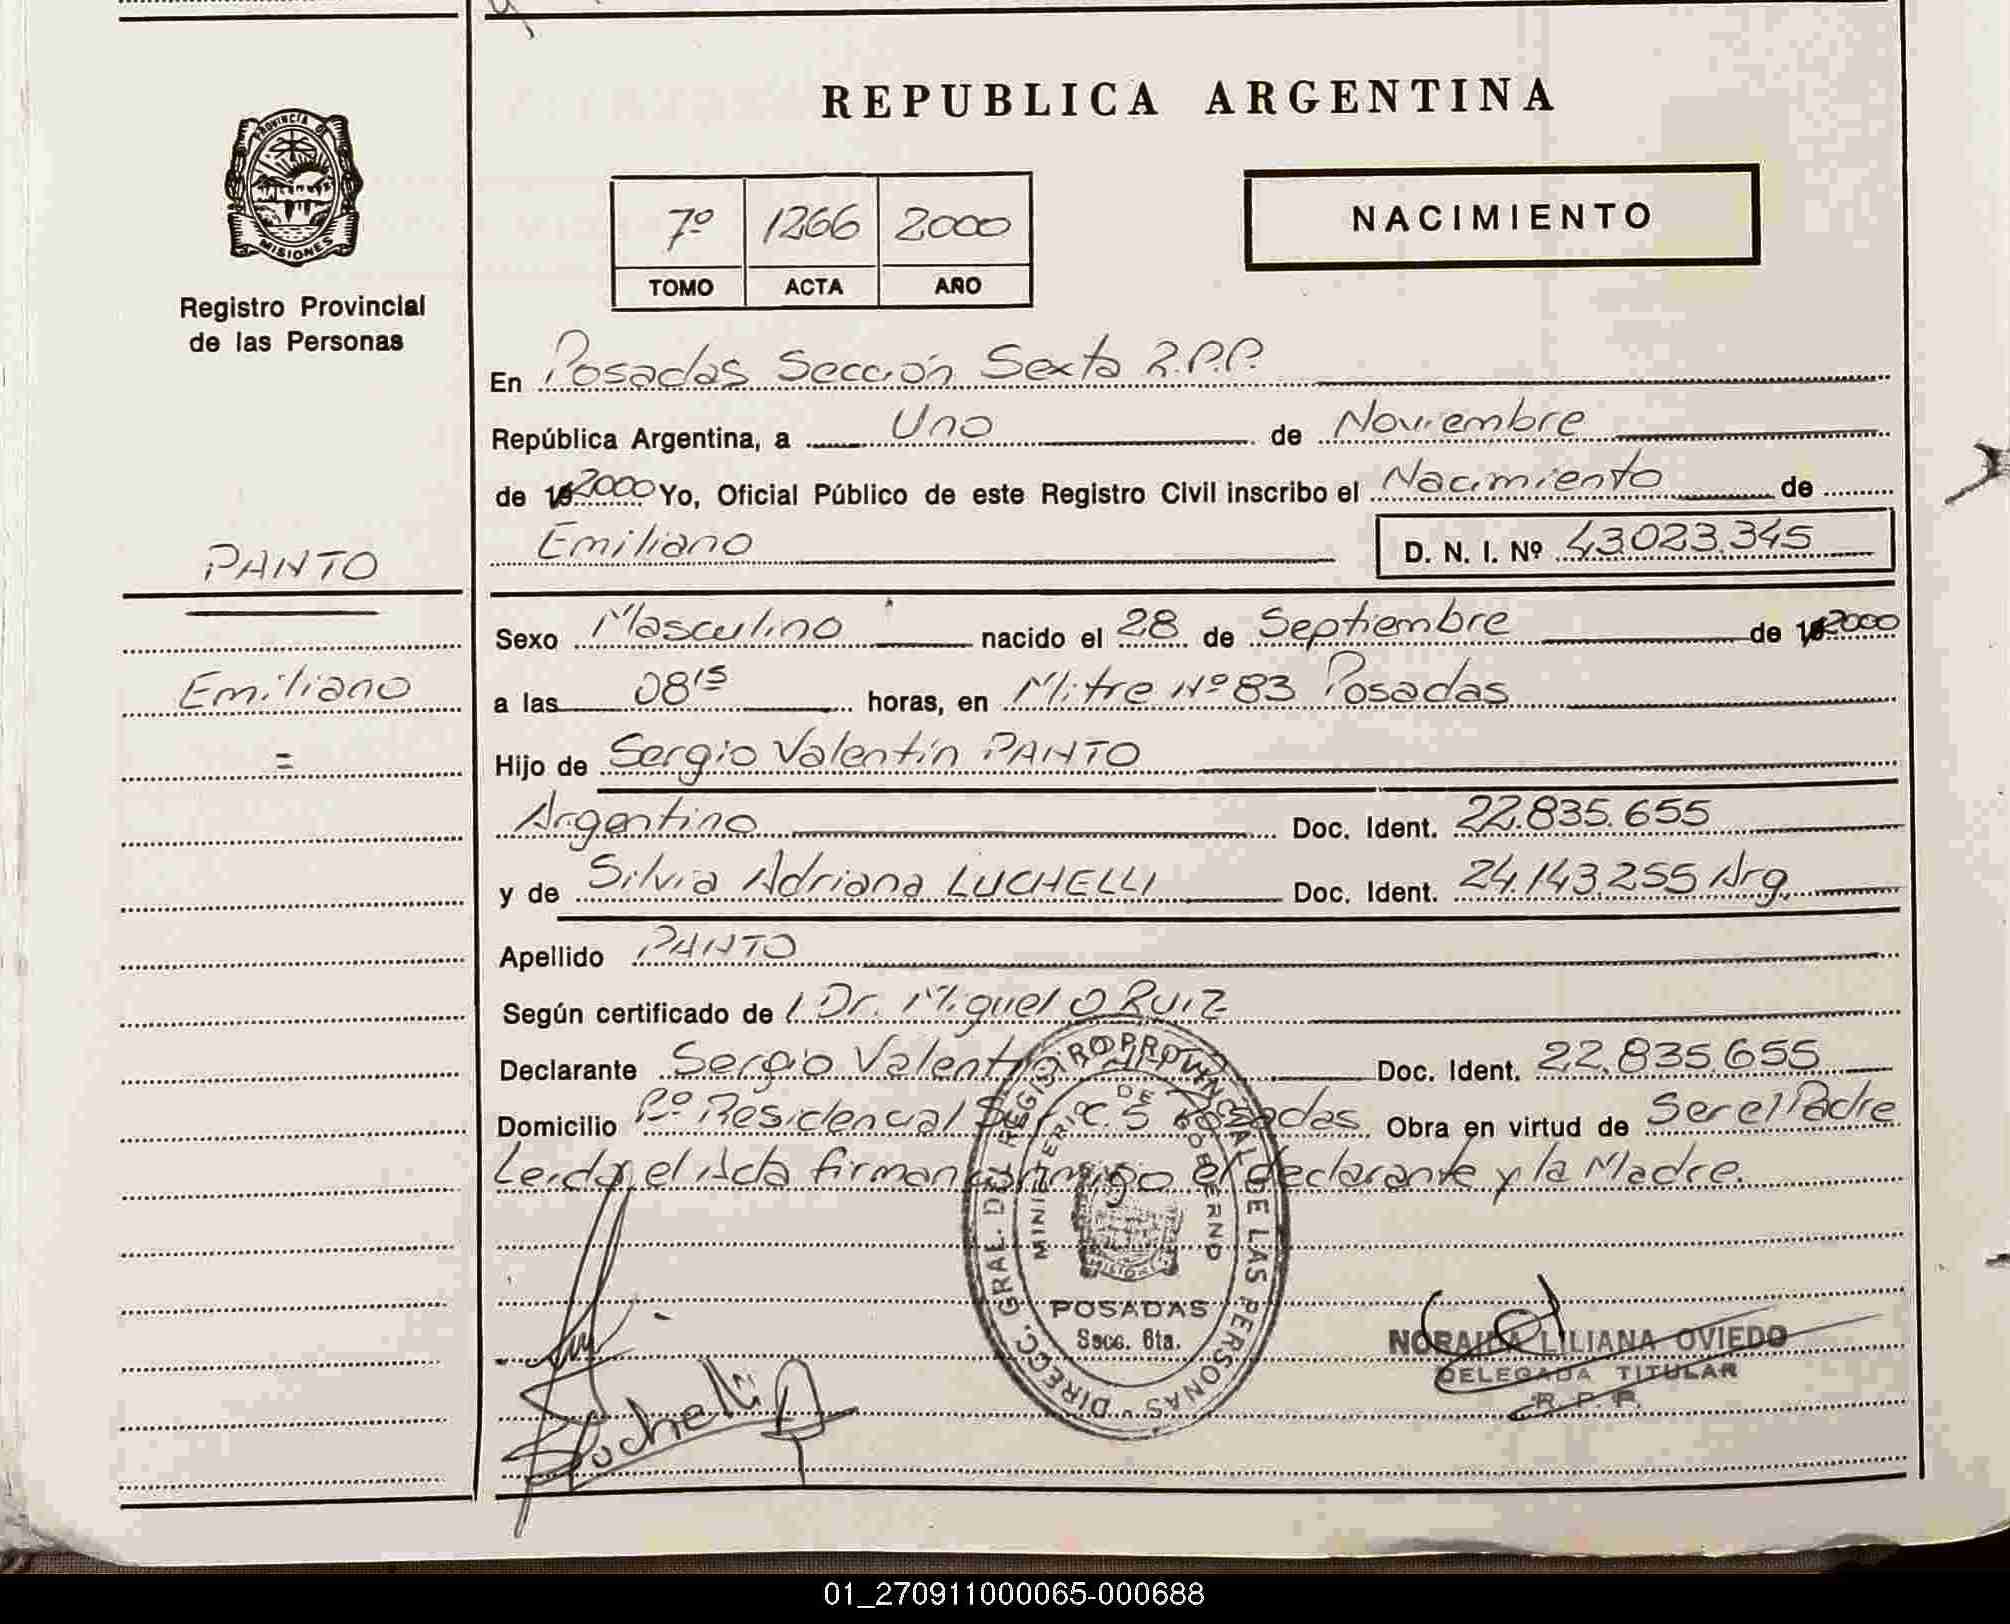 REPUBLICA ARGENTINA
PROVINCIA DE
MISIONES
Registro Provincial
de las Personas
7º 1266 2000
TOMO ACTA AÑO
NACIMIENTO
En Posadas Sección Sexta R.P.P.
República Argentina, a Uno de Noviembre
de 2000 Yo, Oficial Público de este Registro Civil inscribo el Nacimiento de
Emiliano D. N. I. Nº 43.023.345
PANTO
Emiliano
=
Sexo Masculino nacido el 28 de Septiembre de 2000
a las 08 15 horas, en Mitre Nº 83 Posadas
Hijo de Sergio Valentín PANTO
Argentino Doc. Ident. 22.835.655
y de Silvia Adriana LUCHELLI Doc. Ident. 24.143.255 Arg.
Apellido PANTO
Según certificado de l Dr. Miguel O Ruiz
Declarante Sergio Valentín Doc. Ident. 22.835.655
Domicilio Bº Residencial C. 5 Posadas Obra en virtud de Ser el Padre
Leída el Acta firman conmigo el declarante y la Madre.
DIRECC. GRAL. DEL REGISTRO PROVINCIAL DE LAS PERSONAS
MINISTERIO DE GOBIERNO
MISIONES
POSADAS
Secc. 6ta.
Luchelli
NORAIDA LILIANA OVIEDO
DELEGADA TITULAR
R. P. P.
01_270911000065-000688